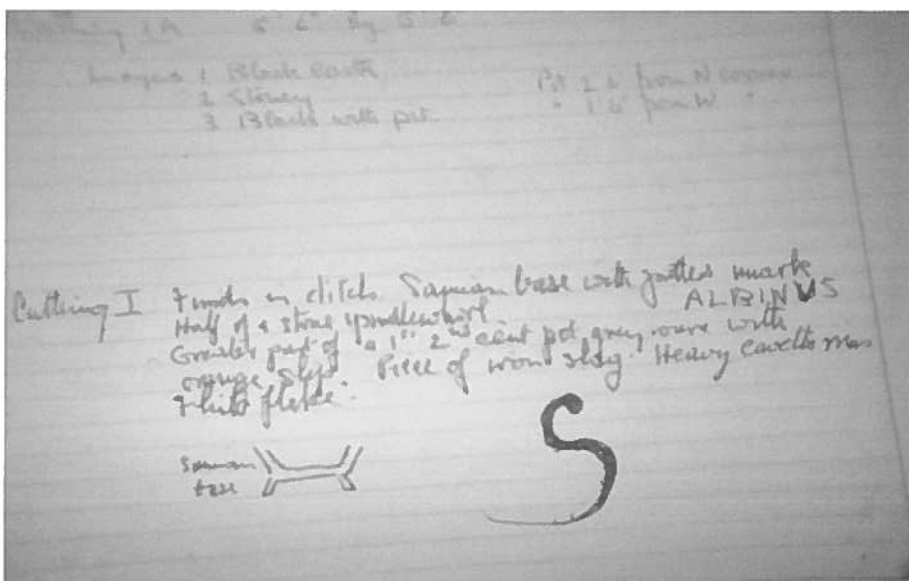 Cutting 1A 6' 6" By 5' 6"
Layers 1 Black earth Pit 2 6 from N corner
2 Stoney " 1 6" from W "
3 Black with pit.
Cutting I Finds in ditch. Samian base with potters mark
ALBINVS
Half of a stone spindlewhorl.
Greater part of a 1st 2nd cent pot grey ware with
orange slip. Piece of iron slag. Heavy cavetto
Flint flake.
Samian
base